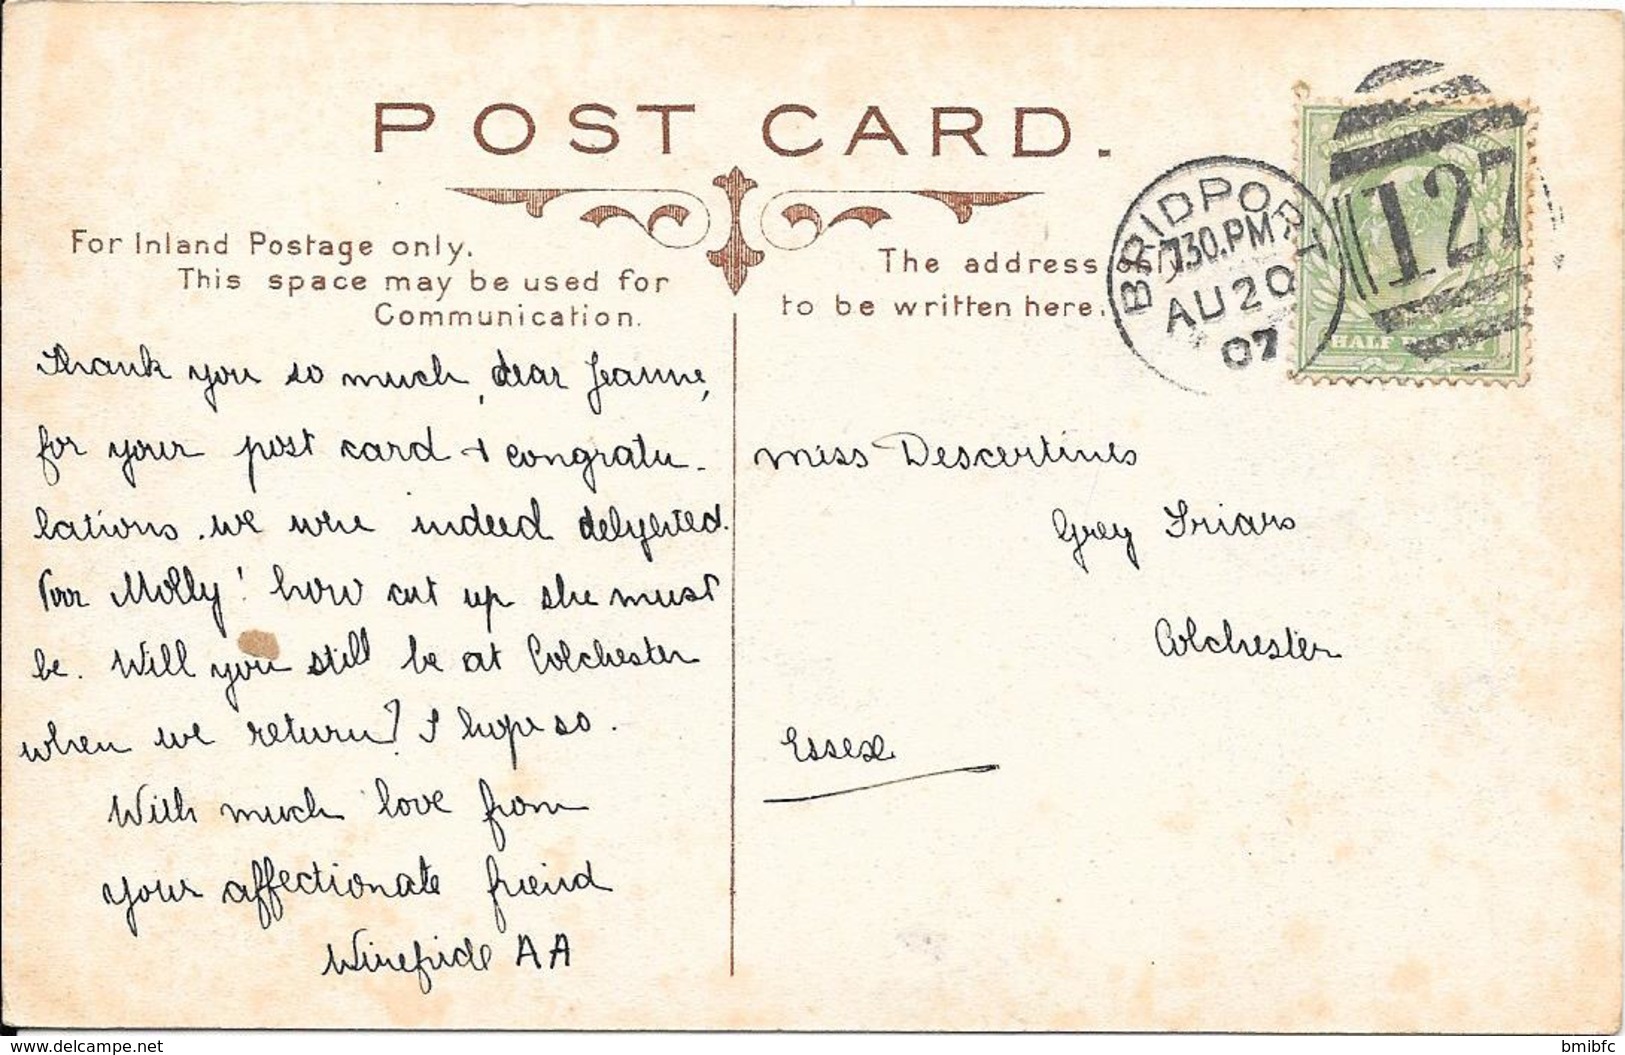 POST CARD.
For Inland Postage only.
This space may be used for
Communication.
The address only
to be written here.
BRIDPORT
7.30.PM
AU 20
07
127
HALF PENNY
Thank you so much, dear Jeanne,
for your post card + congratu-
lations. we were indeed delyghted.
Poor Molly! how cut up she must
be. Will you still be at Colchester
when we return? I hope so.
With much love from
your affectionate friend
Winefride A A
Miss Descertines
Grey Friars
Colchester
Essex
www.delcampe.net
bmibfc